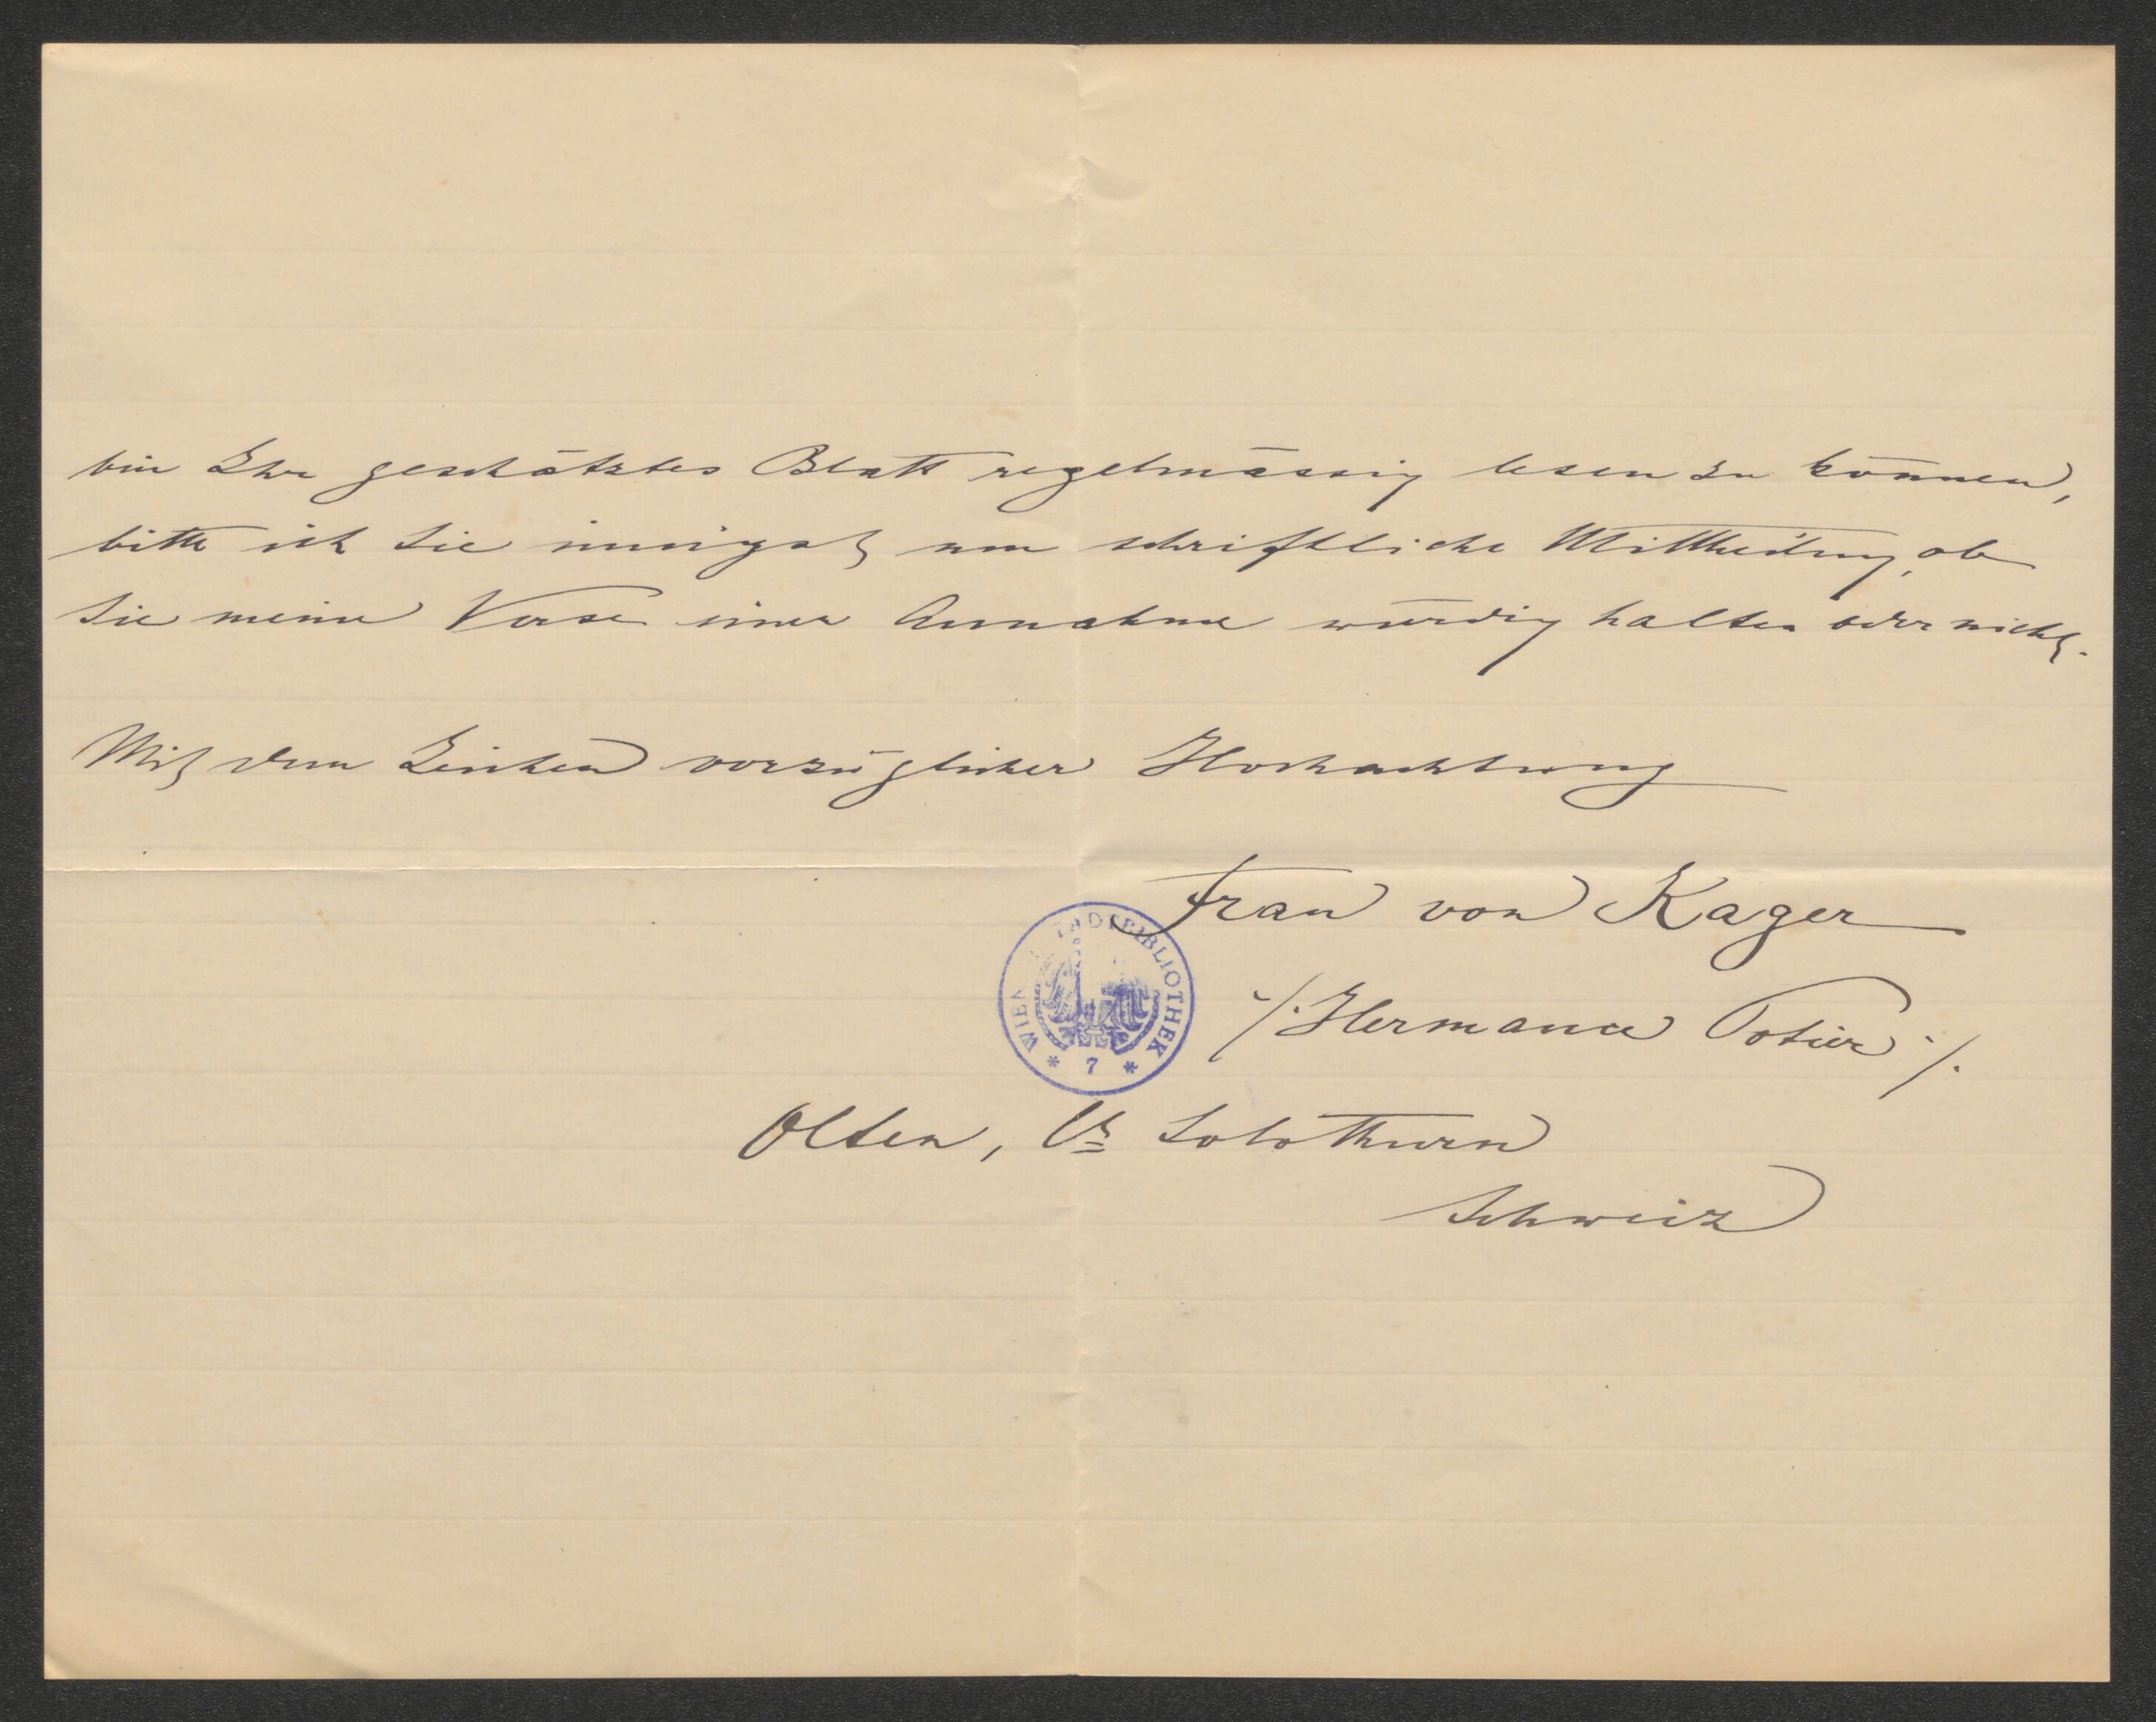 bin Ihr geschätztes Blatt regelmässig lesen zu können,
bitte ich Sie innigst um schriftliche Mittheilung, ob
Sie meine Verse einer Annahme würdig halten oder nicht.
Mit dem Zeichen vorzüglicher Hochachtung
Frau von Kager
/: Hermance Potier :/
Olten, Ct Solothurn
Schweiz
WIEN STADTBIBLIOTHEK
* 7 *